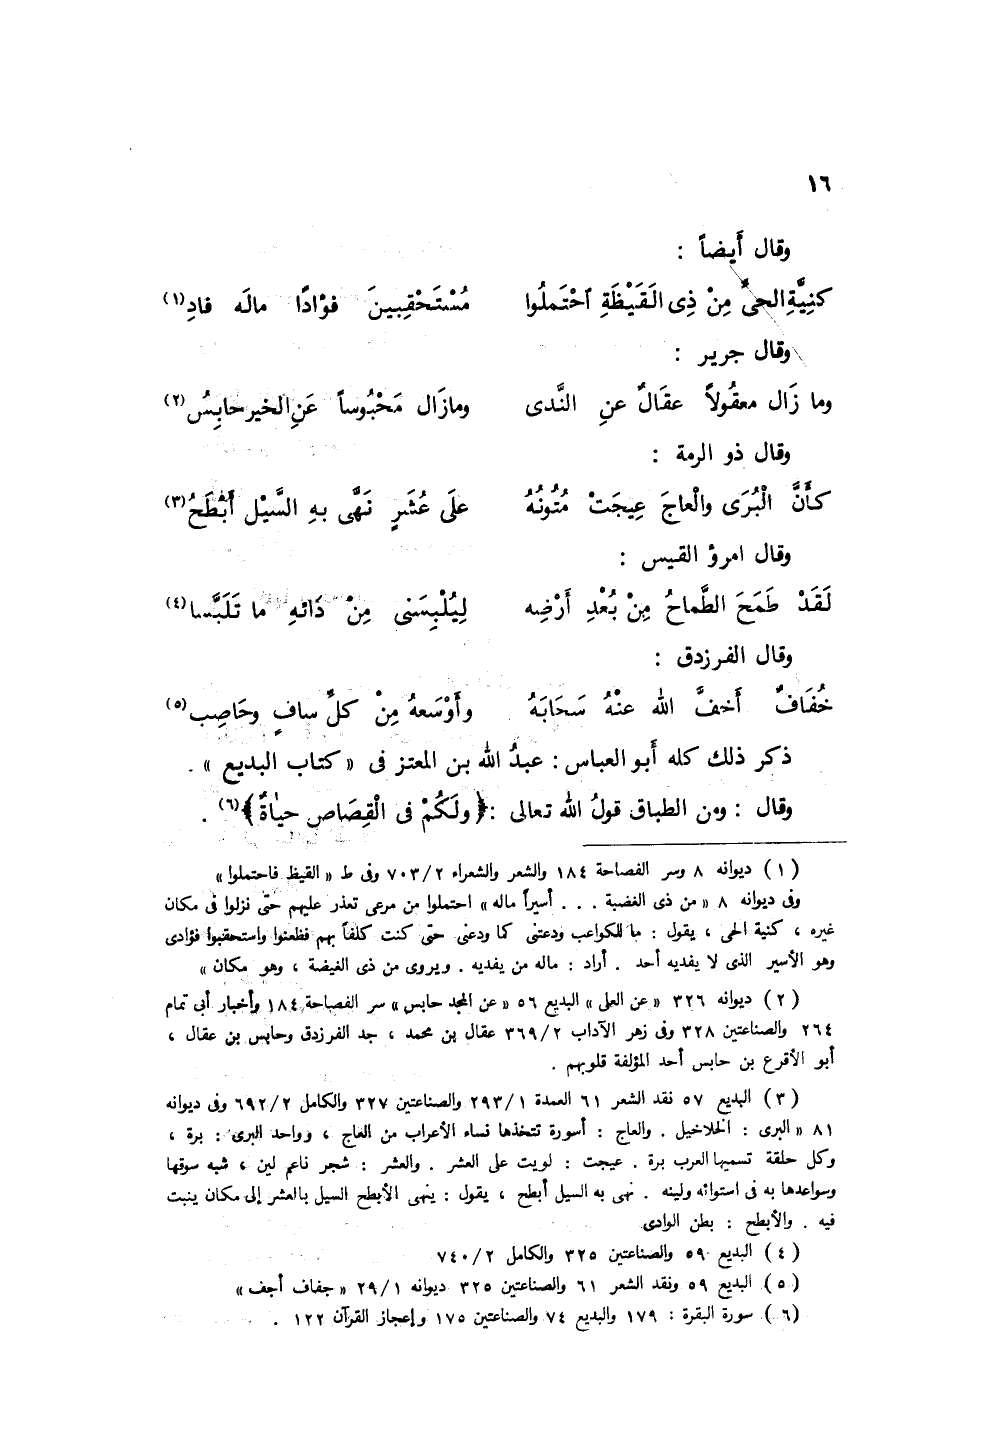 ١٦
وقال أَيضاً :
كنِيَّةِ الحىِّ مِنْ ذِى القَيْظَةِ احْتَملُوا مُسْتَحْقِبينَ فؤادًا مالَه فادِ(١)
وقال جرير :
وما زَال معقُولاً عقَالٌ عن النَّدى ومازَال مَحْبُوساً عَنِ الخير حابِسُ(٢)
وقال ذو الرمة :
كأَنَّ الْبُرَى والْعاجَ عِيجَتْ مُتُونُهُ علَى عُشَرٍ نَهَّى بهِ السَّيْل أَبْطَحُ(٣)
وقال امرؤ القيس :
لَقَدْ طَمَحَ الطَّماحُ مِنْ بُعْدِ أَرْضِه لِيُلْبِسَنى مِنْ دَائهِ ما تَلَبَّسا(٤)
وقال الفرزدق :
خُفَافٌ أَخفَّ الله عنْهُ سَحَابَهُ وأَوْسَعهُ مِنْ كلِّ سافٍ وحَاصِب(٥)
ذكر ذلك كله أَبو العباس : عبدُ الله بن المعتز فى « كتاب البديع » .
وقال : ومن الطباق قولُ الله تعالى : ﴿ولَكُمْ فى الْقِصَاصِ حيٰاةٌ﴾(٦) .
(١) ديوانه ٨ وسر الفصاحة ١٨٤ والشعر والشعراء ٧٠٣/٢ وفى ط « القيظ فاحتملوا »
وفى ديوانه ٨ « من ذى الغضبة . . . أسيراً ماله » احتملوا من مرعى تعذر عليهم حتى نزلوا فى مكان
غيره ، كنية الحى ، يقول : ما للكواعب ودعتنى كما ودعنى حتى كنت كلفاً بهم فظعنوا واستحقبوا فؤادى
وهو الأسير الذى لا يفديه أحد . أراد : ماله من يفديه . ويروى من ذى الغيضة ، وهو مكان »
(٢) ديوانه ٣٢٦ « عن العلى » البديع ٥٦ « عن المجد حابس » سر الفصاحة ١٨٤ وأخبار أبى تمام
٢٦٤ والصناعتين ٣٢٨ وفى زهر الآداب ٣٦٩/٢ عقال بن محمد ، جد الفرزدق وحابس بن عقال ،
أبو الأقرع بن حابس أحد المؤلفة قلوبهم .
(٣) البديع ٥٧ نقد الشعر ٦١ العمدة ٢٩٣/١ والصناعتين ٣٢٧ والكامل ٦٩٢/٢ وفى ديوانه
٨١ « البرى : الخلاخيل . والعاج : أسورة تتخذها نساء الأعراب من العاج ، وواحد البرى : برة ،
وكل حلقة تسميها العرب برة . عيجت : لويت على العشر . والعشر : شجر ناعم لين ، شبه سوقها
وسواعدها به فى استوائه ولينه . نهى به السيل أبطح ، يقول : ينهى الأبطح السيل بالعشر إلى مكان ينبت
فيه . والأبطح : بطن الوادى
(٤) البديع ٥٩ والصناعتين ٣٢٥ والكامل ٧٤٠/٢
(٥) البديع ٥٩ ونقد الشعر ٦١ والصناعتين ٣٢٥ ديوانه ٢٩/١ « جفاف أجف »
(٦) سورة البقرة : ١٧٩ والبديع ٧٤ والصناعتين ١٧٥ وإعجاز القرآن ١٢٢ .